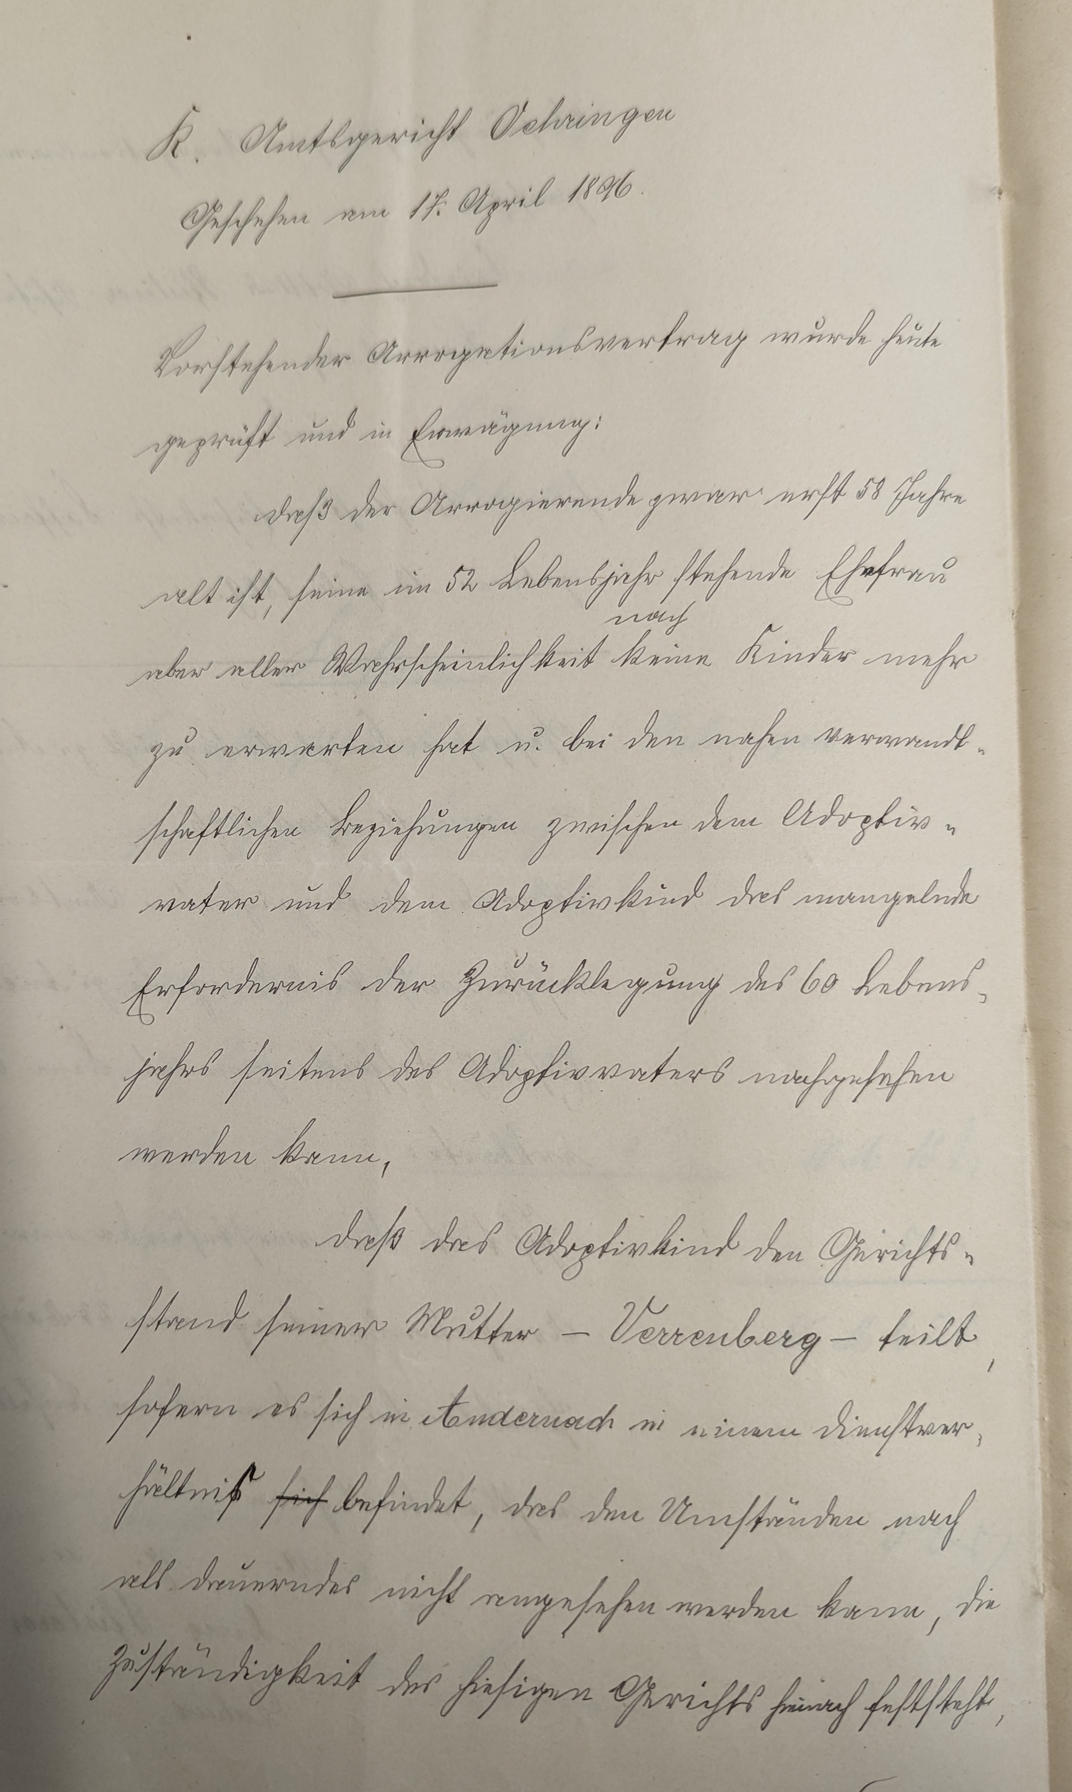 K. Amtsgericht Oehringen
Geschehen am 17. April 1896.
Vorstehender Arrogationsvertrag wurde heute
geprüft und in Erwägung:
daß der Arrogierende zwar erst 58 Jahre
alt ist, seine im 52 Lebensjahr stehende Ehefrau
nach
aber aller Wahrscheinlichkeit keine Kinder mehr
zu erwarten hat u. bei den nahen verwandt-
schaftlichen Beziehungen zwischen dem Adoptiv-
vater und dem Adoptivkind das mangelnde
Erfordernis der Zurücklegung des 60 Lebens-
jahrs seitens des Adoptivvaters nachgesehen
werden kann,
daß das Adoptivkind den Gerichts-
stand seiner Mutter – Verrenberg – teilt,
sofern es sich in Andernach in einem Dienstver-
hältniß sich befindet, das den Umständen nach
als dauerndes nicht angesehen werden kann, die
Zuständigkeit des hiesigen Gerichts hienach feststeht,